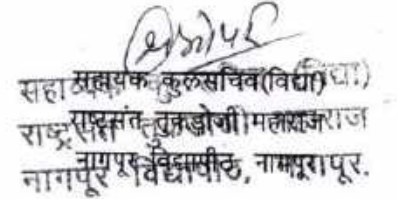 सहायक कुलसचिव(विद्या)
राष्ट्रसंत तुकडोजी महाराज
नागपूर विद्यापीठ, नागपूर.